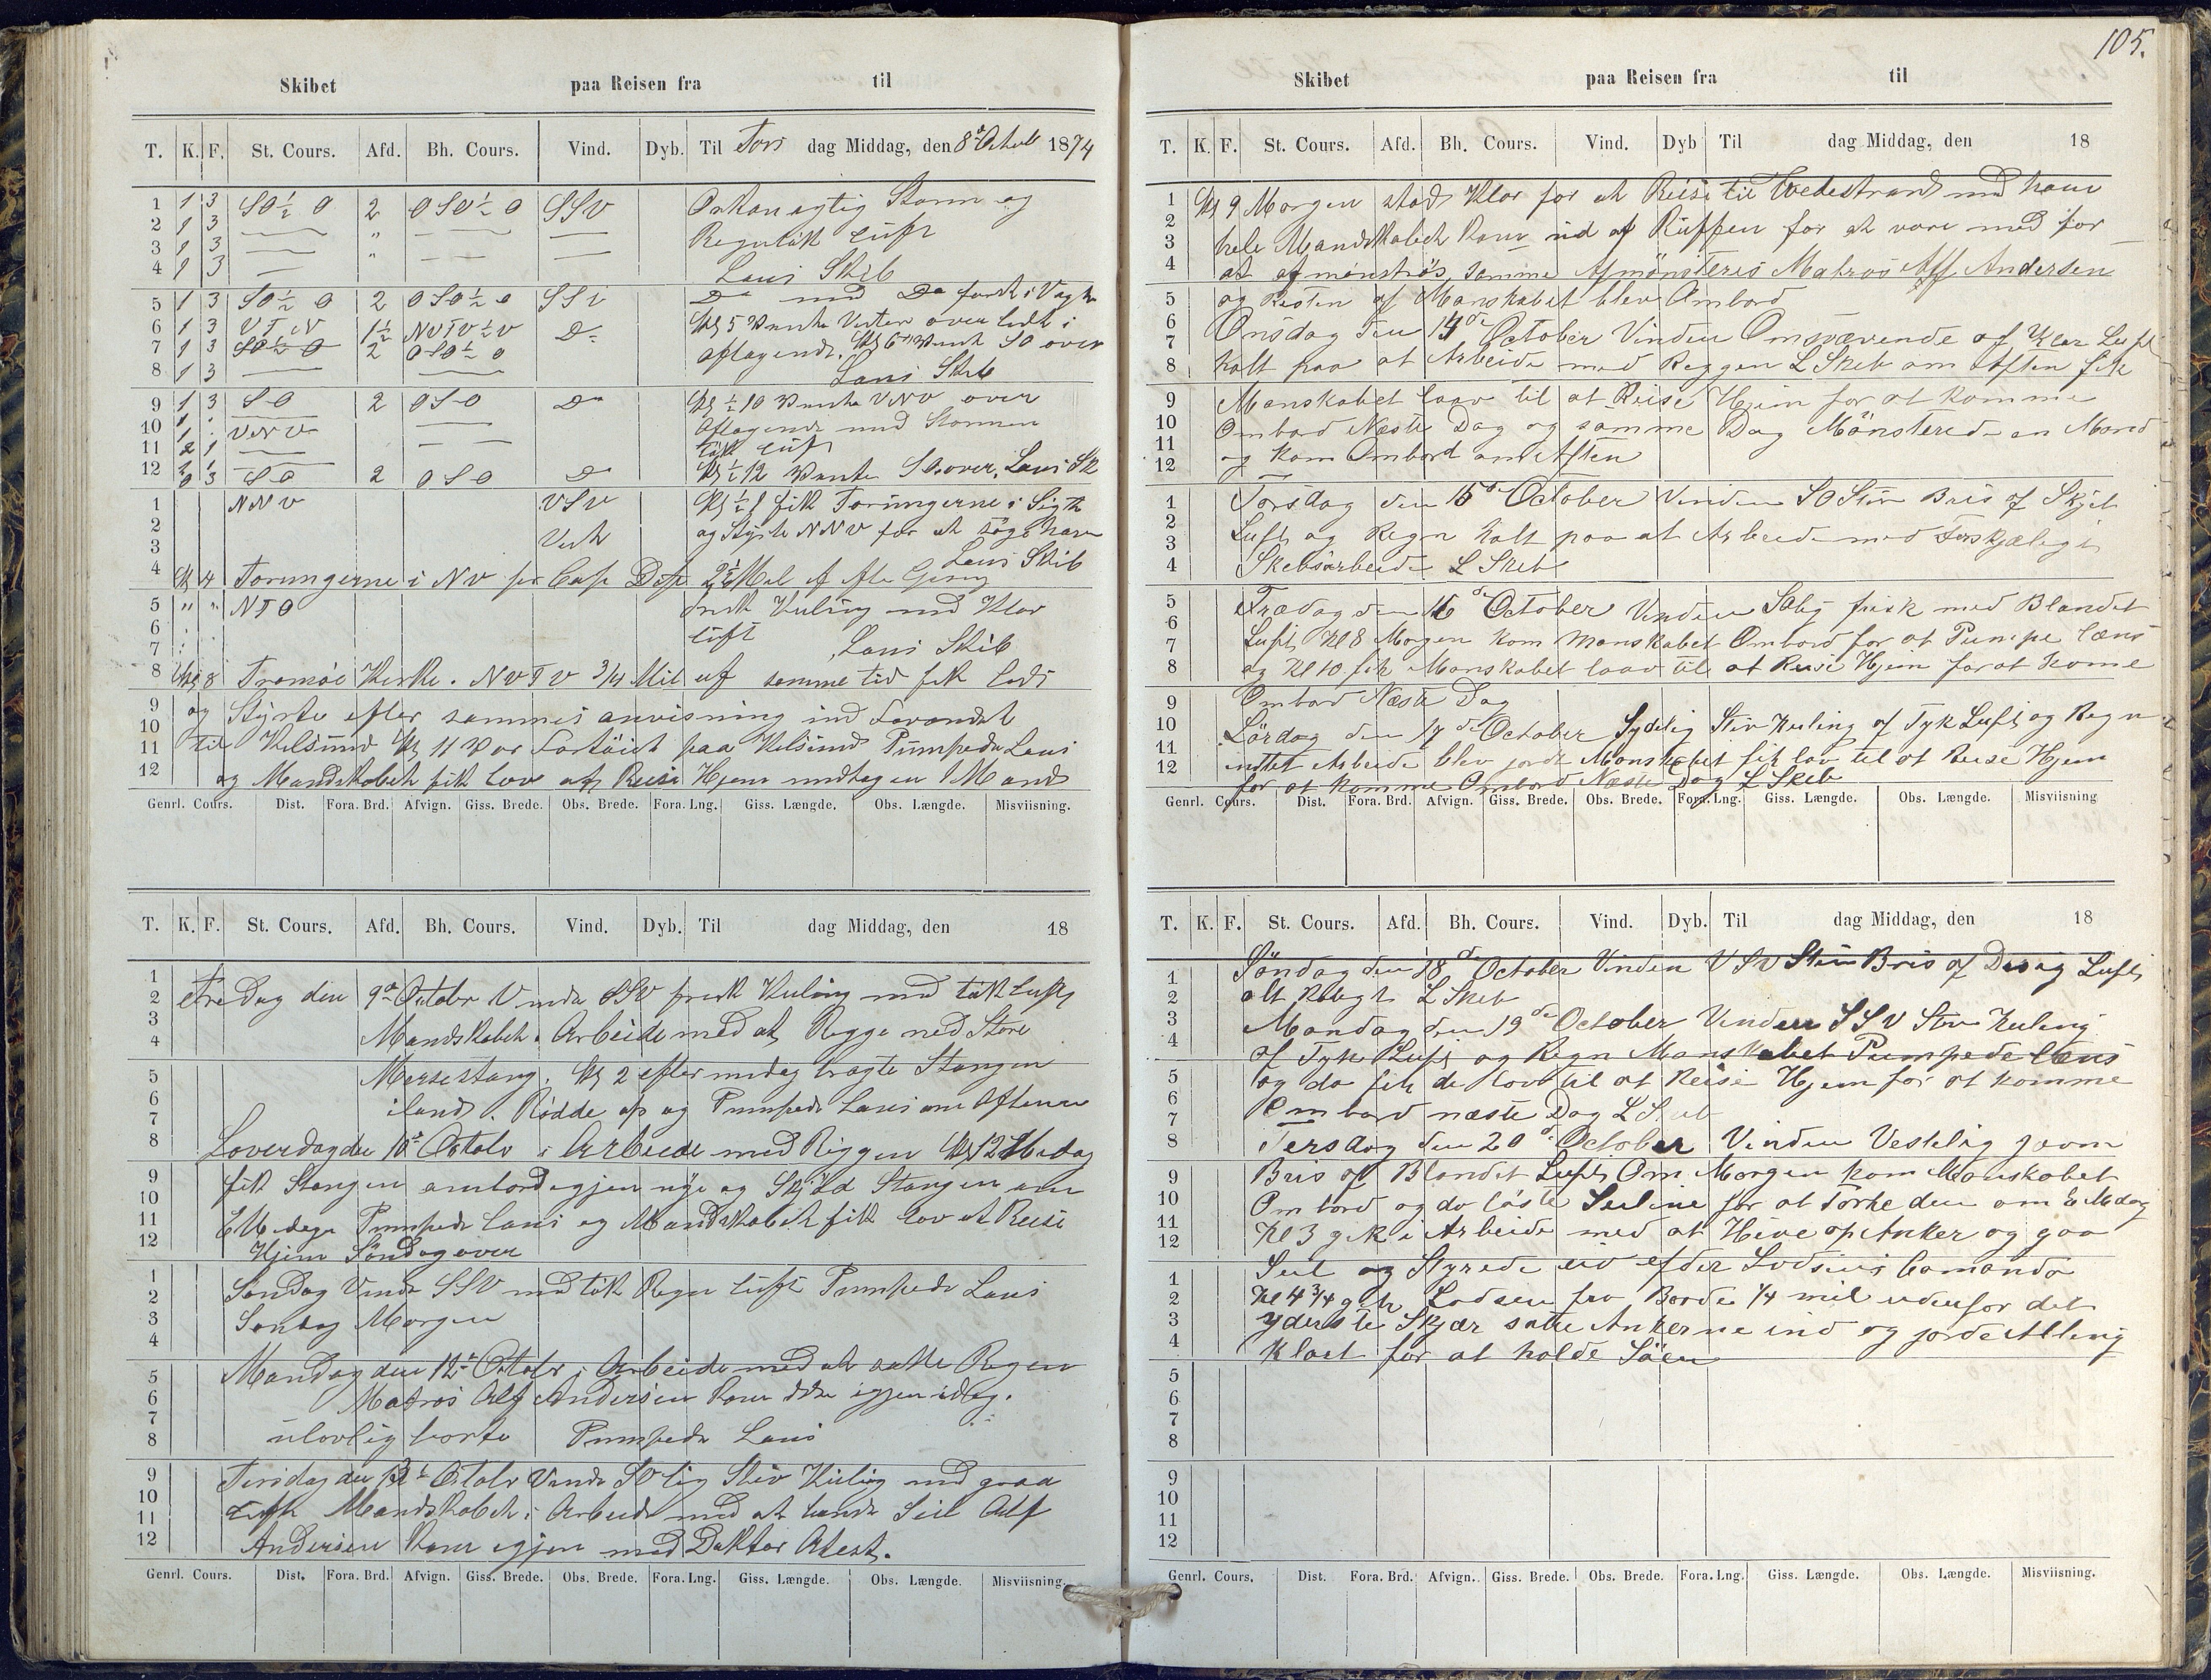 Skibet paa Reisen fra til
T. K. F. St. Cours. Afd. Bh. Cours. Vind. Dyb. Til Tors dag Middag, den 8de Octob 1874
1 1 3 SO½O 2 OSO½O SSV Orkanagtig Storm og
2 1 3 " Regntük Lüft
3 1 3 "
4 1 3 Lens Skib
5 1 3 SO½O 2 OSO½O SSV Do med Do
6 1 3 VTN 1½ NVTV½V Do Kl 5 Vente Vester over
7 1 3 SO½O 2 OSO½O aftagende. Kl 6 Vente SO over
8 1 3 Lens Skib
9 1 3 SO 2 OSO Do Kl ½10 Vente VNV over
10 1 VNV Aftagende med Stormen
11 2 1 Tük Lüft
12 3 SO 2 OSO Do Kl ½12 Vente SO over, Lens Sk
1 NNV VSV Kl ½1 fik Torungerne i Sigte
2 og Styrte NNV for at søge havn
3 Vest
4 Kl 4 Torungerne i NV pr Comp Dist 2½ Mil af Lens Skib
5 " " NTO Frisk Kuling med Klar
6 Lüft
7 Lens Skib
8 Kl 8 Tromöe Kirke. NVTV 3/4 Mil af samme tid fik Lods
9 og Styrte efter sammes anvisning ind
10
11 til Kilsund Kl 11 Var Fortöiet paa Kilsund Pümpede Lens
12 og Mandskabet fik Lov at Reise Hjem undtagen 1 Mand
Genrl. Cours. Dist. Fora. Brd. Afvign. Giss. Brede. Obs. Brede. Fora. Lng. Giss. Længde. Obs. Længde. Misviisning.
T. K. F. St. Cours. Afd. Bh. Cours. Vind. Dyb. Til dag Middag, den 18
1
2 Fredag den 9de October Vinde SSV frisk Kuling med tük Luft
3 Mandskabet i Arbeide med at Rigge ned Store
4
5 Mersestang. Kl 2 eftermidag bragte Stangen
6
7 iland. Rödde op og Pumpede Lens om Aftenen
8 Loverdag den 10de Octobr i Arbeide med Riggen Kl 12 Midag
9 fik Stangen ombord igjen nye og Skjöd Stangen om
10
11 EMidage Pumpede Lens og Mandskabet fik Lov at Reise
12 Hjem Söndag over
1 Söndag Vinde SSV med tük Regn Lüft Pumpede Lens
2
3 Söndag Morgen
4
5 Mandag den 12te Octobr i Arbeide med at sætte Ragen
6 Matros Alf Andersen kom ikke igjen idag.
7
8 ulovlig borte Pumpede Lens
9 Tirsdag den 13de Octobr Vinde SV lig Stiv Kuling med graa
10
11 Luft Mandskabet i Arbeide med at Seil Alf
12 Andersen Kom igjen med Doktor Atest.
Genrl. Cours. Dist. Fora. Brd. Afvign. Giss. Brede. Obs. Brede. Fora. Lng. Giss. Længde. Obs. Længde. Misviisning.
105.
Skibet paa Reisen fra til
T. K. F. St. Cours. Afd. Bh. Cours. Vind. Dyb Til dag Middag, den 18
1 Kl 9 Morgen stod Klar for at Reise til Tvedestrand med ham
2
3 hele Mandskabet Kom ud af Ruffen for at vare med for
4 at afmønströs, samme Afmönsteres Matros Alf Andersen
5 og Resten af Manskabet blev Ombord
6 Onsdag den 14de October Vinden Omsvævende af Klar Luft
7
8 holt paa at Arbeide med Reggen L Skeb om Aften fik
9 Manskabet laav til at Reise Hjem for at Komme
10 Ombord Næste Dag og samme Dag Mönsterede en Mand
11
12 og kom Ombord om Aften
1 Torsdag den 15de October Vinden SO Stiv Bris af Skyet
2
3 Luft og Regn holt paa at Arbeide med Forskjælige
4 Skebsarbeide L Skeb
5 Fradag den 16de October Vinden Solig frisk med Blandet
6
7 Luft Kl 8 Morgen kom Manskabet Ombord for at Pumpe læns
8 og Kl 10 fik Manskabet laav til at Reise Hjem for at Kome
9 Ombord Næste Dag
10 Lördag den 17de October Sydelig Stiv Kuling af Tyk Luft og Regn
11
12 indtet Arbeide blev jordt Manskabet fik lov til at Reise Hjem
for at Komme Ombord Næste Dag L Skeb
Genrl. Cours. Dist. Fora. Brd. Afvign. Giss. Brede. Obs. Brede. Fora. Lng. Giss. Længde. Obs. Længde. Misviisning
T. K. F. St. Cours. Afd. Bh. Cours. Vind. Dyb. Til dag Middag, den 18
1 Söndag den 18de October Vinden VSV Stiv Bris af Disig Luft
2 alt Rolegt L Skeb
3 Mandag den 19de October Vinden SSV Stiv Kuling
4 af Tyk Luft og Regn Manskabet Pumpede læns
5 og da fik de lov til at Reise Hjem for at komme
6
7 Ombord næste Dag L Skeb
8 Tersdag den 20de October Vinden Vestelig jævn
9 Bris af Blandet Luft Om Morgen kom Manskabet
10 Ombord og da löste Seilene for at Törke dem om EMdag
11
12 Kl 3 gek i Arbeide med at Hive op Anker og gaa
1 Seil og Styrede ud efter Lodsens Comando
2 Kl 4 3/4 gik Lodsen fra Borde 1/4 mil udenfor det
3 yderste Skjær satte Ankerne ind og jorde Alting
4 Klart for at holde Söen
5
6
7
8
9
10
11
12
Genrl. Cours, Dist. Fora. Brd. Afvign. Giss. Brede. Obs. Brede. Fora. Lng. Giss. Længde. Obs. Længde. Misviisning.